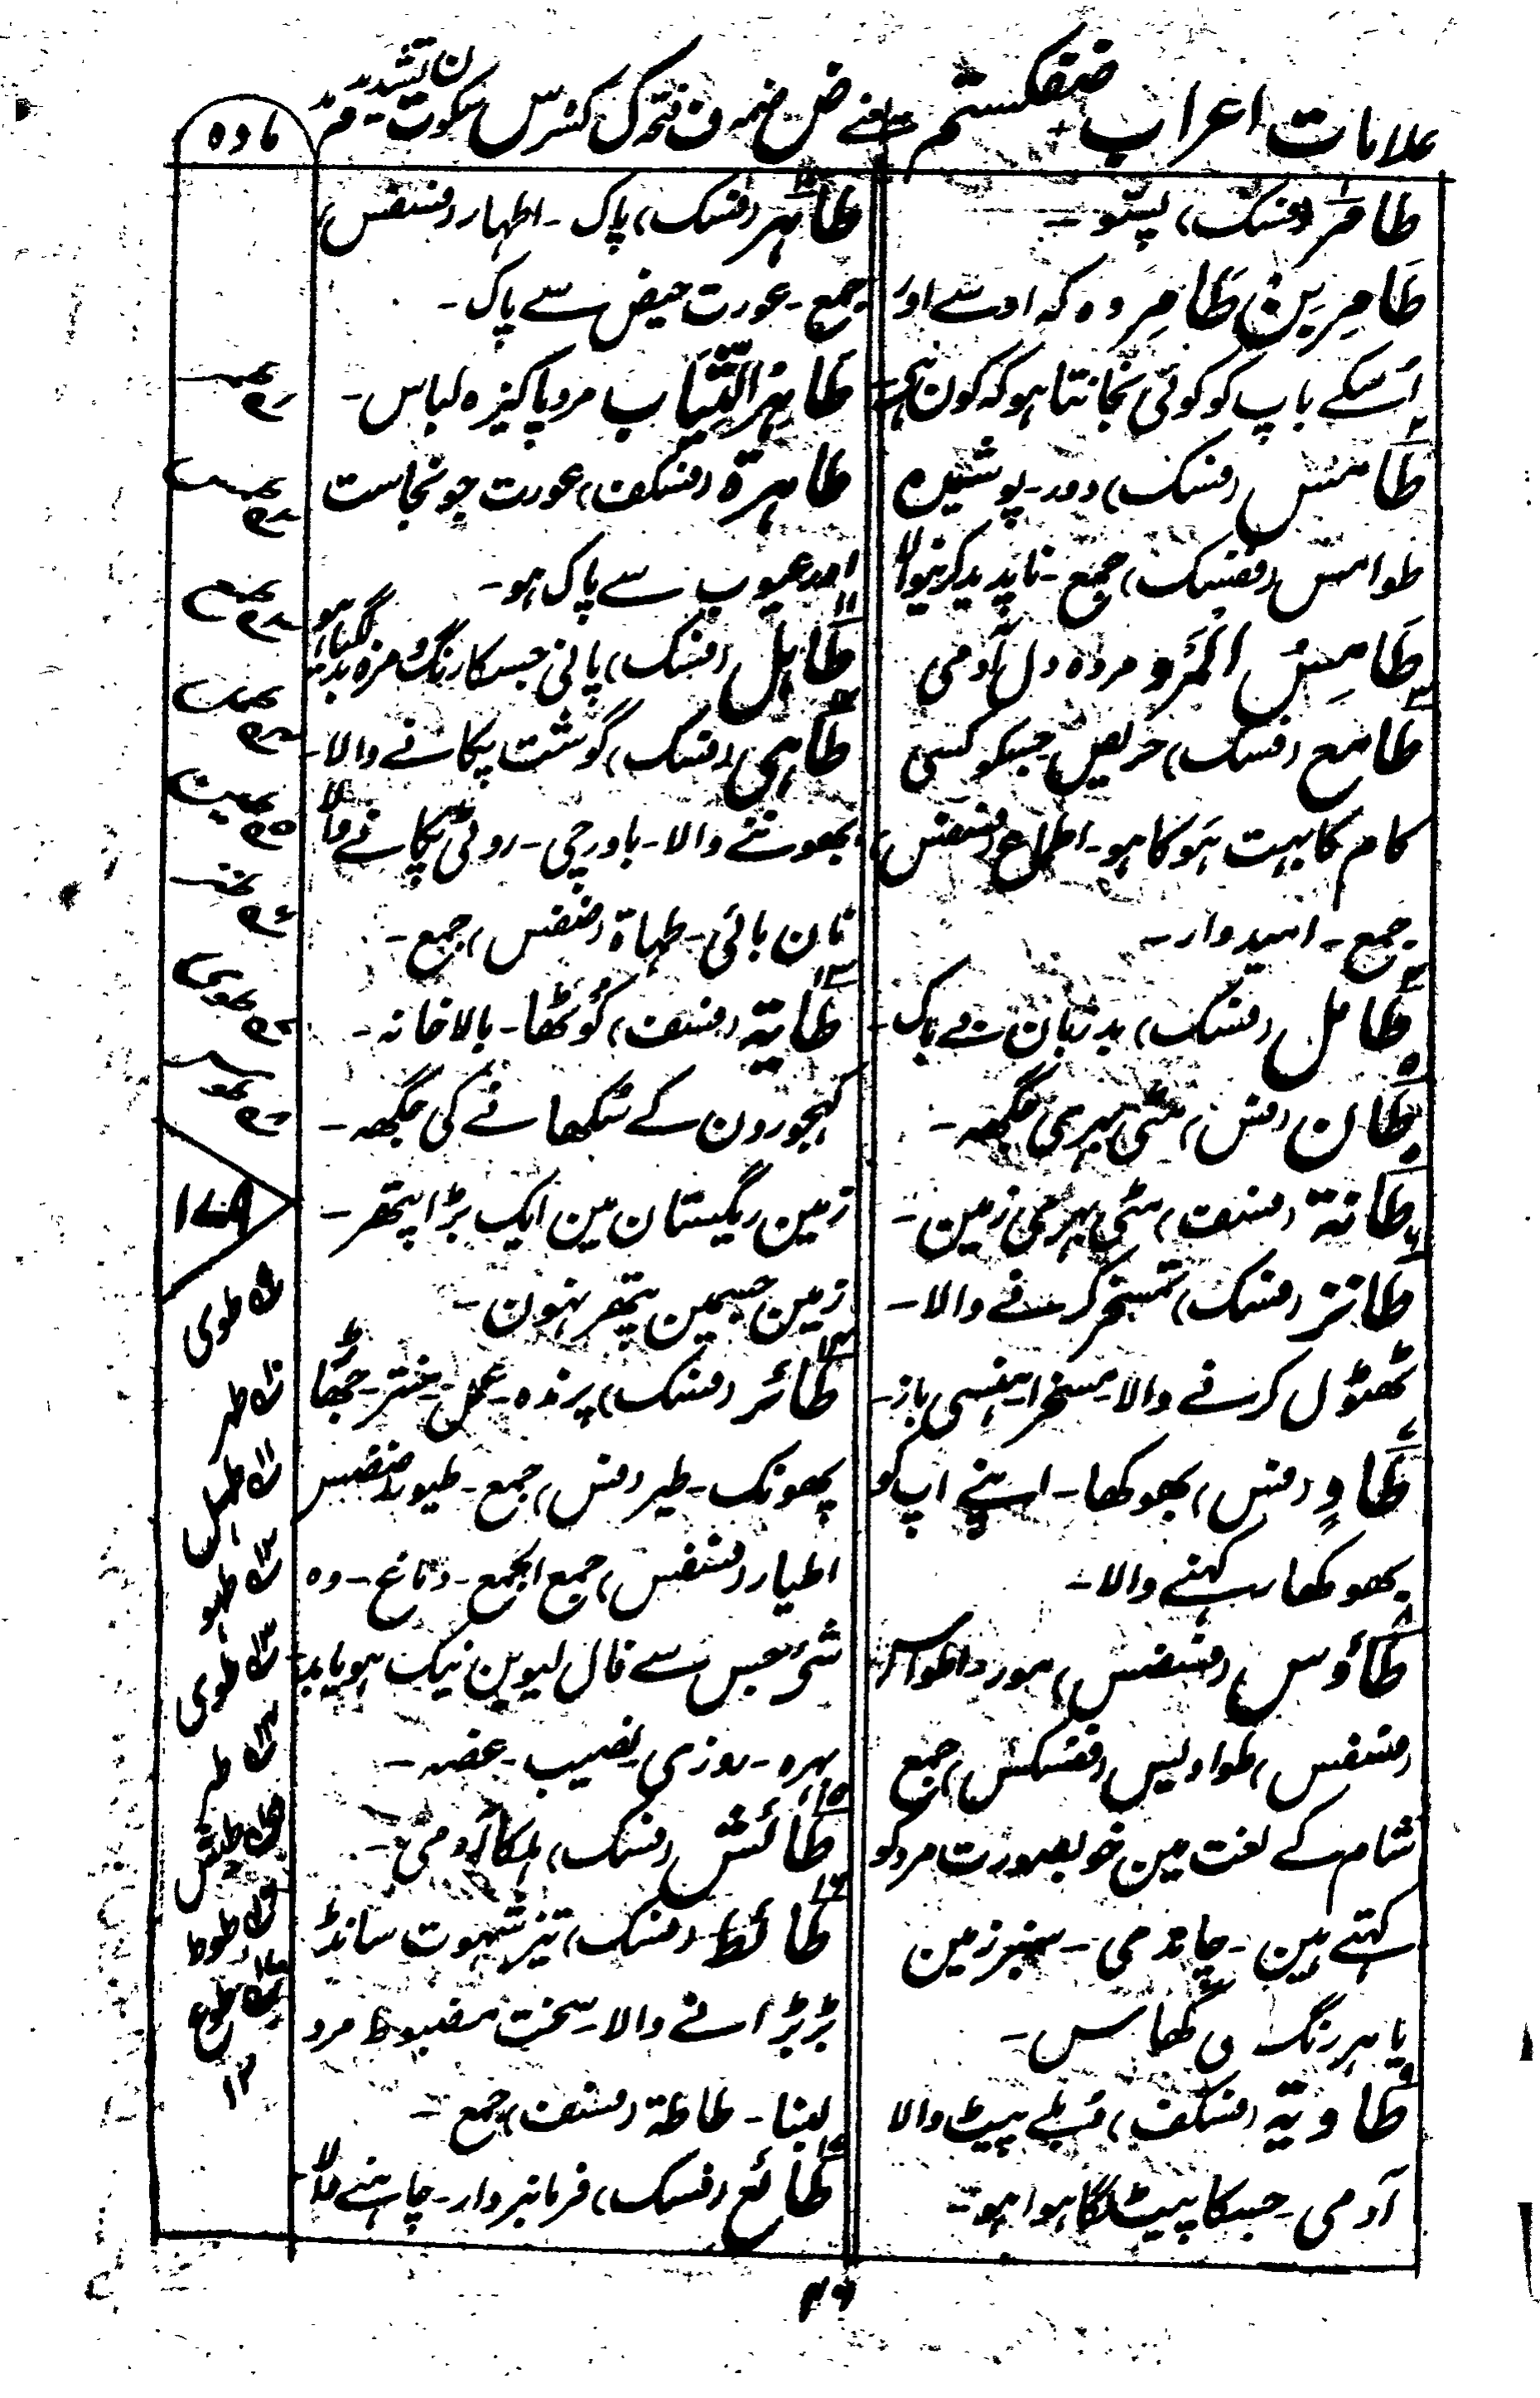 علامات اعراب ضفکستم یعنے ض ضمہ ف فتحہ ک کسرہ س سکوت م مد ن تشدید
مادہ
طامر (فسک) پسّو ۔
طَامِر بنُ طَامِر وہ کہ اوسے اور
اُسکے باپ کو کوئی نجانتا ہو کہ کون ہی
طامس (فسک) دور ۔ پوشیدہ
طوامس (ففسک) جمع ۔ ناپدید کرنیوالا
طَامِسُ المَرْو مردہ دل آدمی
طامع (فسک) حریص جسکو کسی
کام کا بہت ہَوکا ہو ۔ اطماع (فسفس)
جمع ۔ امیدوار ۔
طامل (فسک) بد زبان بے باک ۔
طان (فس) مٹی بہری جگھہ ۔
طانة (فسف) مٹی بہری زمین ۔
طانز (فسک) تمسخر کرنے والا ۔
ٹھٹول کرنے والا ۔ مسخرا ۔ ہنسی باز ۔
طاوٍ (فس) بھوکھا ۔ اپنے اپ کو
بھوکھا رکھنے والا ۔
طاؤس (فسضس) مور ۔ اطواس
(فسفس) طواویس (ففسکس) جمع
شام کے لغت مین خوبصورت مرد کو
کہتے ہین ۔ چاندی ۔ سبز زمین
یا ہر رنگ کی گھاس ۔
طاویة (فسکف) دُبلے پیٹ والا
آدمی ۔ جسکا پیٹ لگا ہوا ہو ۔
طاہر (فسک) پاک ۔ اطہار (فسفس)
جمع ۔ عورت حیض سے پاک ۔
طَاہِرُ الثِّیَاب مرد پاکیزہ لباس ۔
طاہرة (فسکف) عورت جو نجاست
اور عیوب سے پاک ہو ۔
طاہل (فسک) پانی جسکا رنگ و مزہ بدل گیا ہو
طاہی (فسک) گوشت پکانے والا ۔
بھوننے والا ۔ باورچی ۔ روٹی پکانے والا
نان بائی ۔ طہاة (ضفس) جمع ۔
طایة (فسف) کوٹھا ۔ بالاخانہ ۔
کہجورون کے سُکھانے کی جگھہ ۔
زمین ریگستان مین ایک بڑا پتھر ۔
زمین جسمین پتھر نہون ۔
طائر (فسک) پرندہ ۔ عمل ۔ منتر ۔ جھَّا
پھونک ۔ طیر (فس) جمع ۔ طیور (ضضس)
اطیار (فسفس) جمع الجمع ۔ دماغ ۔ وہ
شئ جس سے فال لیوین نیک ہو یا بد
بہرہ ۔ روزی نصیب ۔ غصہ ۔
طائش (فسک) ہلکا آدمی ۔
طائط (فسک) تیز شہوت سانڈ
بڑبڑانے والا ۔ سخت مضبوط مرد
لبنا ۔ طاطة (فسف) جمع ۔
طائع (فسک) فرمانبردار ۔ چاہنے والا
طوی
طہر
طہل
طہو
طوی
طیر
طیش
طوط
طوع
۱۲